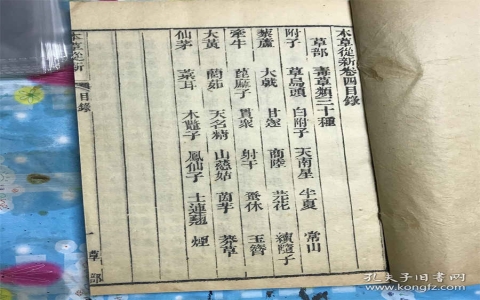 本草從新卷四目錄
草部 毒草類三十種
附子 草烏頭 白附子 天南星 半夏 常山
藜蘆 大戟 甘遂 商陸 芫花 續隨子
牽牛 蓖麻子 貫衆 射干 蚤休 玉簪
大黃 䕡茹 天名精 山慈姑 茵芋 莽草
仙茅 葈耳 木鼈子 鳳仙子 土連翹 煙
本草從新 目錄 一 草部
孔夫子旧书网
www.kongfz.com